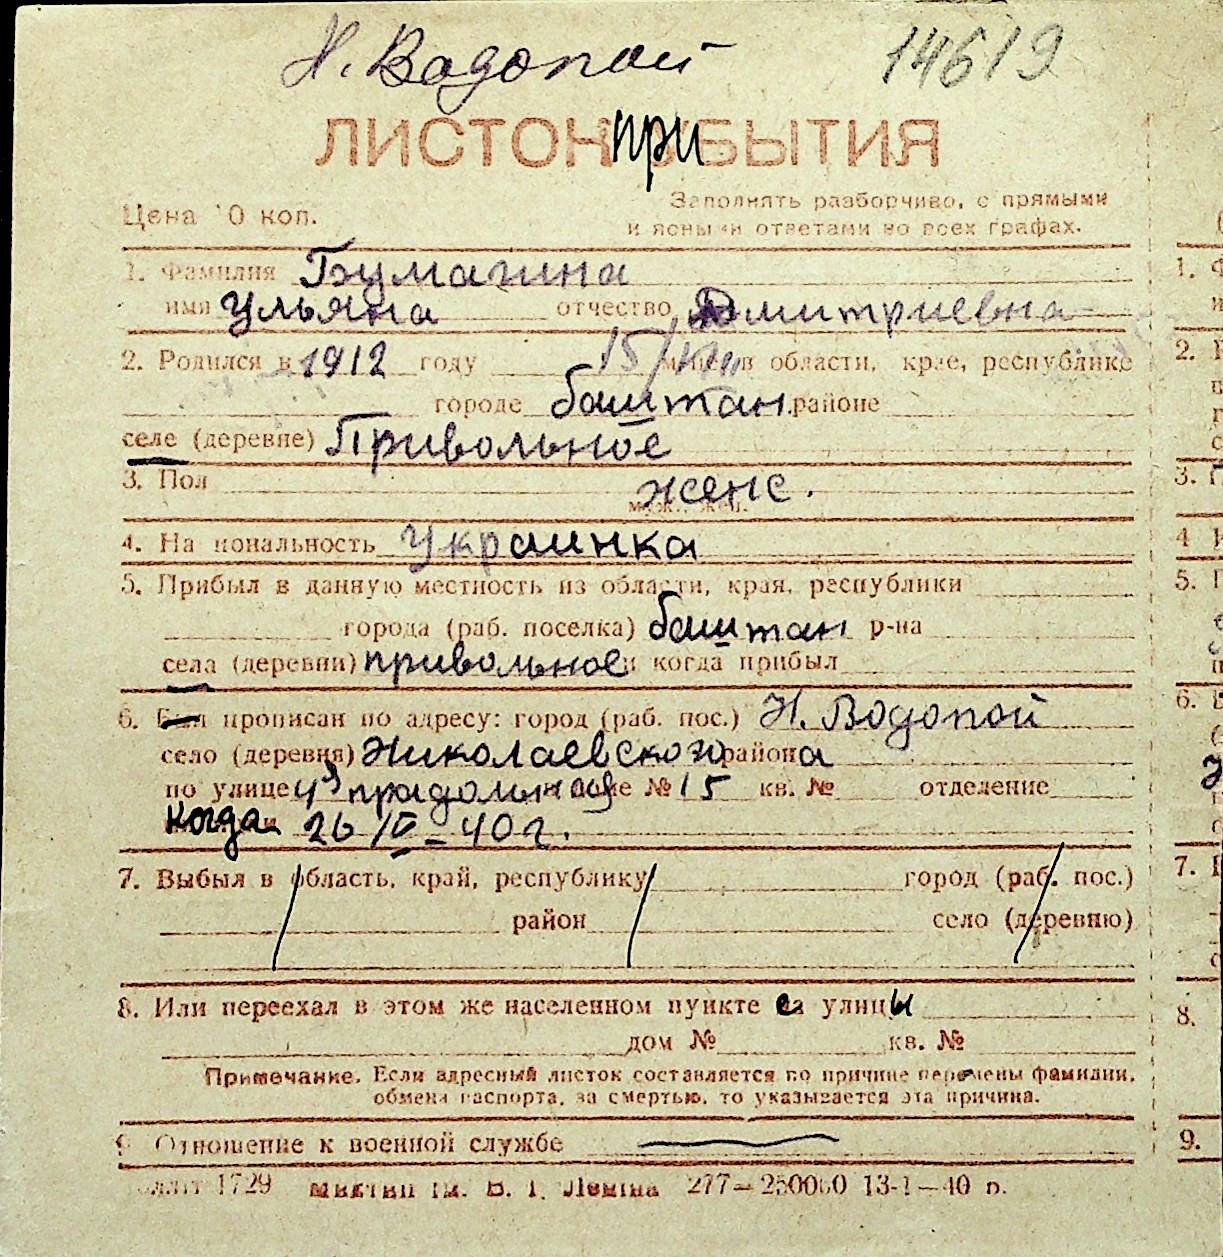 Н. Водопой 14619
ЛИСТОК ПРИБЫТИЯ
Заполнять разборчиво, с прямыми
Цена 10 коп.
и ясными ответами во всех графах.
1. Фамилия Бумагина
имя Ульяна отчество Дмитриевна
2. Родился в 1912 году 15/VIII м-це в области, крае, республике
городе баштан. районе
селе (деревне) Привольное
3. Пол женс.
муж., жен.
4. Национальность украинка
5. Прибыл в данную местность из области, края, республики
города (раб. поселка) баштан р-на
села (деревни) привольное и когда прибыл
6. Был прописан по адресу: город (раб. пос.) Н. Водопой
село (деревня) Николаевского района
по улице 4я продольная № 15 кв. № отделение
когда 26/IV-40 г.
7. Выбыл в область, край, республику город (раб. пос.)
район село (деревню)
8. Или переехал в этом же населенном пункте с улицы
дом № кв. №
Примечание. Если адресный листок составляется по причине перемены фамилии,
обмена паспорта, за смертью, то указывается эта причина.
9. Отношение к военной службе
1729 им. В. І. Леніна 277—250000 13-1—40 р.
1.
2.
3.
4
5.
6.
7.
8.
9.